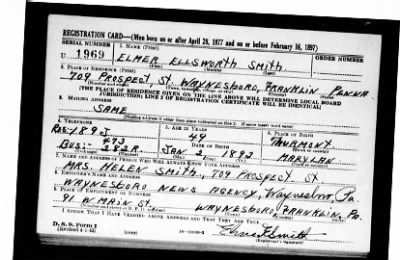 REGISTRATION CARD—(Men born on or after April 28, 1877 and on or before February 16, 1897)
SERIAL NUMBER 1. NAME (Print) ORDER NUMBER
U 1969 ELMER ELLSWORTH SMITH
(First) (Middle) (Last)
2. PLACE OF RESIDENCE (Print)
709 PROSPECT ST. WAYNESBORO, FRANKLIN PENNA
(THE PLACE OF RESIDENCE GIVEN ON THE LINE ABOVE WILL DETERMINE LOCAL BOARD
JURISDICTION; LINE 2 OF REGISTRATION CERTIFICATE WILL BE IDENTICAL)
3. MAILING ADDRESS
SAME
4. TELEPHONE 5. AGE IN YEARS 6. PLACE OF BIRTH
RES-189J 49 THURMONT
DATE OF BIRTH
BUS:- 282R. JAN 2, 1893 MARYLAN
7. NAME AND ADDRESS OF PERSON WHO WILL ALWAYS KNOW YOUR ADDRESS
MRS. HELEN SMITH, 709 PROSPECT ST
8. EMPLOYER'S NAME AND ADDRESS
WAYNESBORO NEWS AGENCY, Waynesboro, Pa.
9. PLACE OF EMPLOYMENT OR BUSINESS
91 W. MAIN ST. WAYNESBORO, FRANKLIN, PA.
I AFFIRM THAT I HAVE VERIFIED ABOVE ANSWERS AND THAT THEY ARE TRUE.
D. S. S. Form 1
(Revised 4-1-42) (Registrant's signature)